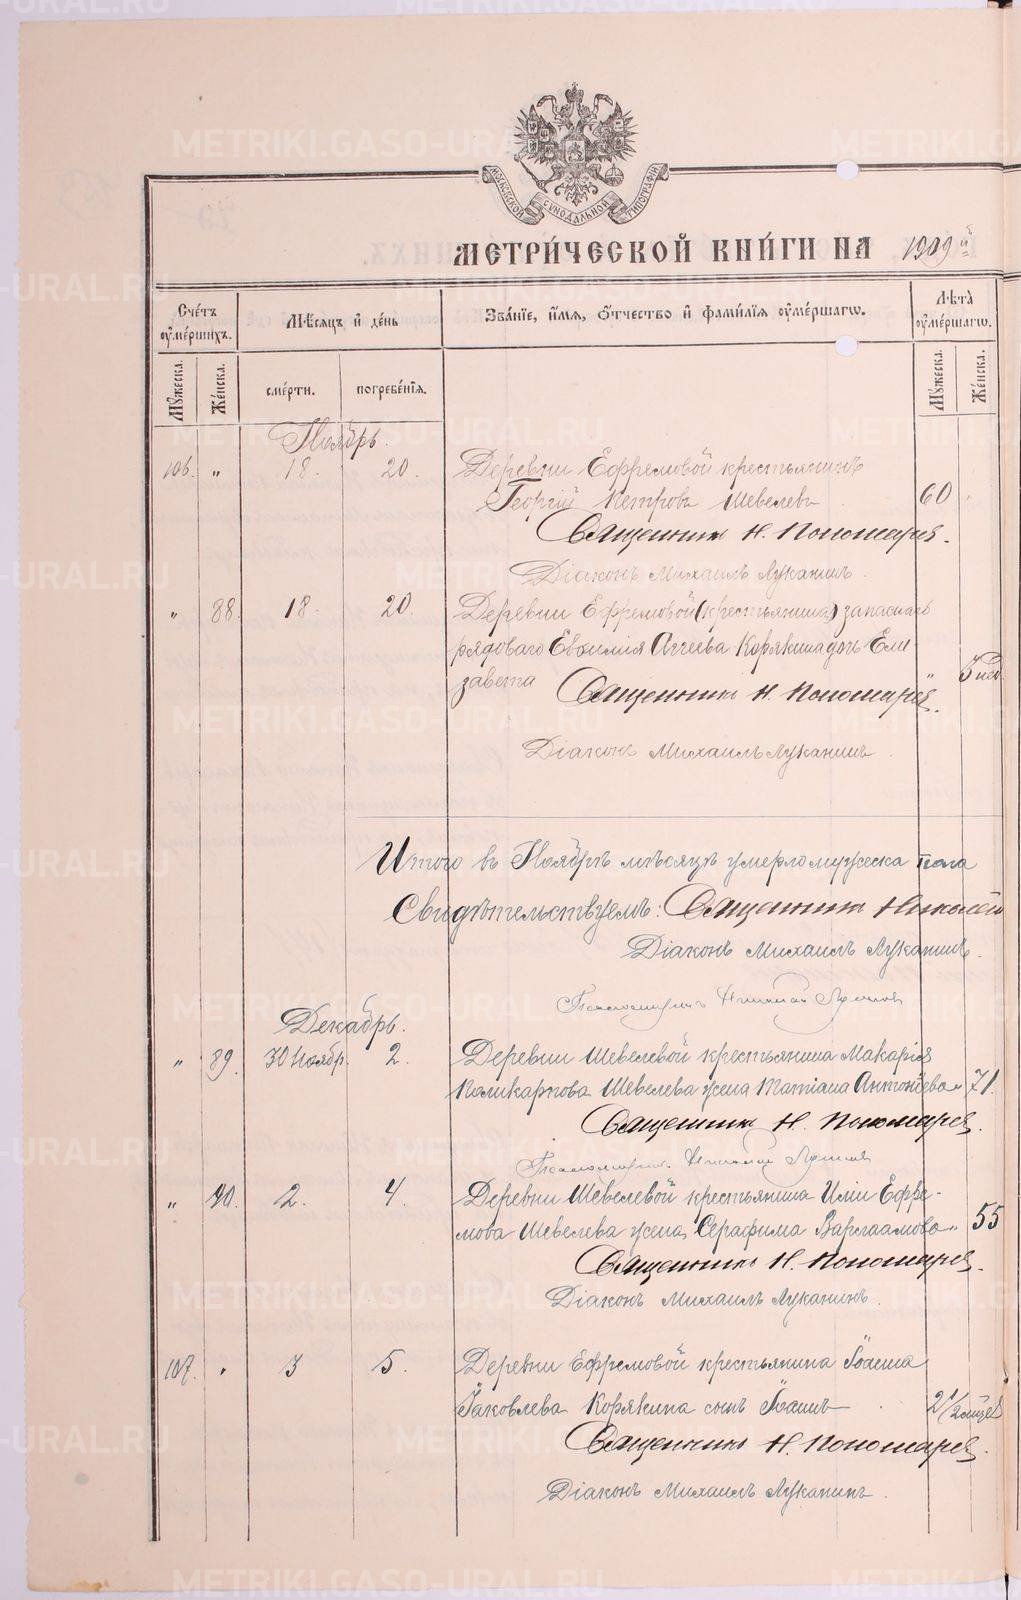 МОСКОВСКОЙ СѴНОДАЛЬНОЙ ТИПОГРАФІИ
МЕТРИ́ЧЕСКОЙ КНИ́ГИ НА 1909й
Сче́тъ ᲂу҆ме́ршихъ.
Мѣ́сяцъ и҆ де́нь
Зва́нїе, и҆́мѧ, ѻ҆́тчество и҆ фами́лїѧ ᲂу҆ме́ршагѡ.
Лѣ́та ᲂу҆ме́ршагѡ.
Мꙋ́жеска. Же́нска. сме́рти. погребе́нїѧ. Мꙋ́жеска. Же́нска.
Ноябрь.
106. " 18. 20. Деревни Ефремовой крестьянинъ
Георгій Петровъ Шевелевъ 60
Священникъ Н. Пономарев.
Діаконъ Михаилъ Луканинъ.
" 88. 18. 20. Деревни Ефремовой (крестьянина) запаснаго
рядоваго Евѳимія Аггеева Корякина дочь Ели-
завета " 5 нед.
Священникъ Н. Пономарев.
Діаконъ Михаилъ Луканинъ.
Итого въ Ноябрѣ мѣсяцѣ умерло мужеска пола
Свидѣтельствуемъ: Священникъ Николай
Діаконъ Михаилъ Луканинъ.
Псаломщикъ Николай
Декабрь.
" 89. 30 Ноябр. 2. Деревни Шевелевой крестьянина Макарія
Поликарпова Шевелева жена Татіана Антоніева " 71.
Священникъ Н. Пономарев.
Псаломщикъ Николай
" 90. 2. 4. Деревни Шевелевой крестьянина Иліи Ефре-
мова Шевелева жена Серафима Варлаамова " 55
Священникъ Н. Пономарев.
Діаконъ Михаилъ Луканинъ.
107. " 3 5. Деревни Ефремовой крестьянина Іоанна
Іаковлева Корякина сынъ Іоаннъ 2 1/2 мѣсе
Священникъ Н. Пономарев.
Діаконъ Михаилъ Луканинъ.
METRIKI.GASO-URAL.RU